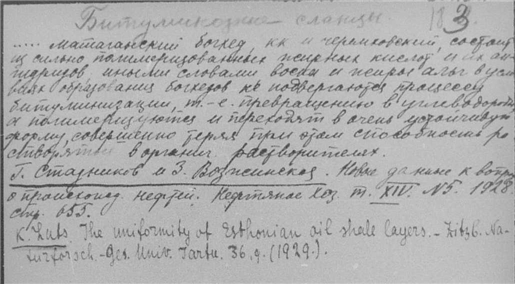 Битуминозные сланцы. 183.
..... матаганский богхед, как и черемховский, состоит
из сильно полимеризованных жирных кислот и их ан-
гидридов, иными словами воски и жиры альг в усло-
виях образования богхедов не подвергаются процессу
битуминизации, т.-е. превращению в углеводороды,
а полимеризуются и переходят в очень устойчивую
форму, совершенно теряя при этом способность ра-
створяться в органич. растворителях.
Г. Стадников и З. Вознжинская. Новые данные к вопросу
о происхожд. нефтей. Нефтяное Хоз. т. XIV. N5. 1928
стр. 655.
K. Luts. The uniformity of Esthonian oil shale layers. - Zitzb. Na-
turforsch.-Ges. Univ. Tartu. 36, 9. (1929.).